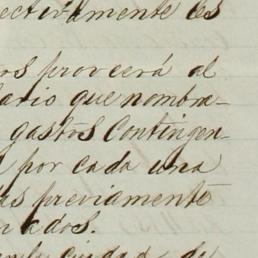 ectivamente es
os proveerá al
tario que nombra-
gastos Contingen-
por cada una
as previamente
ados.
cuidad de